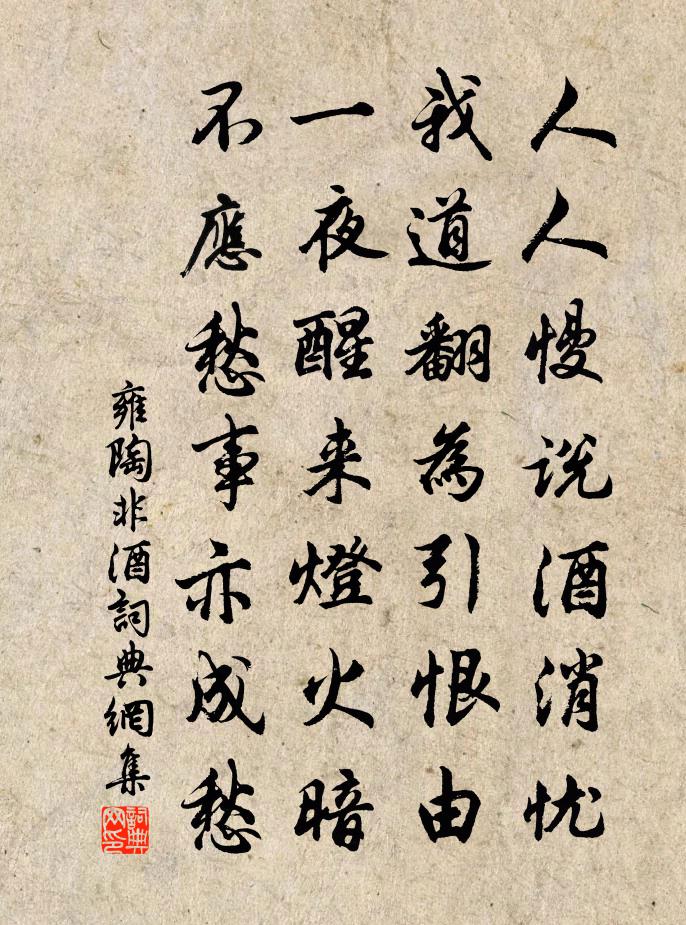 人人慢说酒消忧
我道翻為引恨由
一夜醒来燈火暗
不應愁事亦成愁
雍陶非酒詞典網集
詞典網印